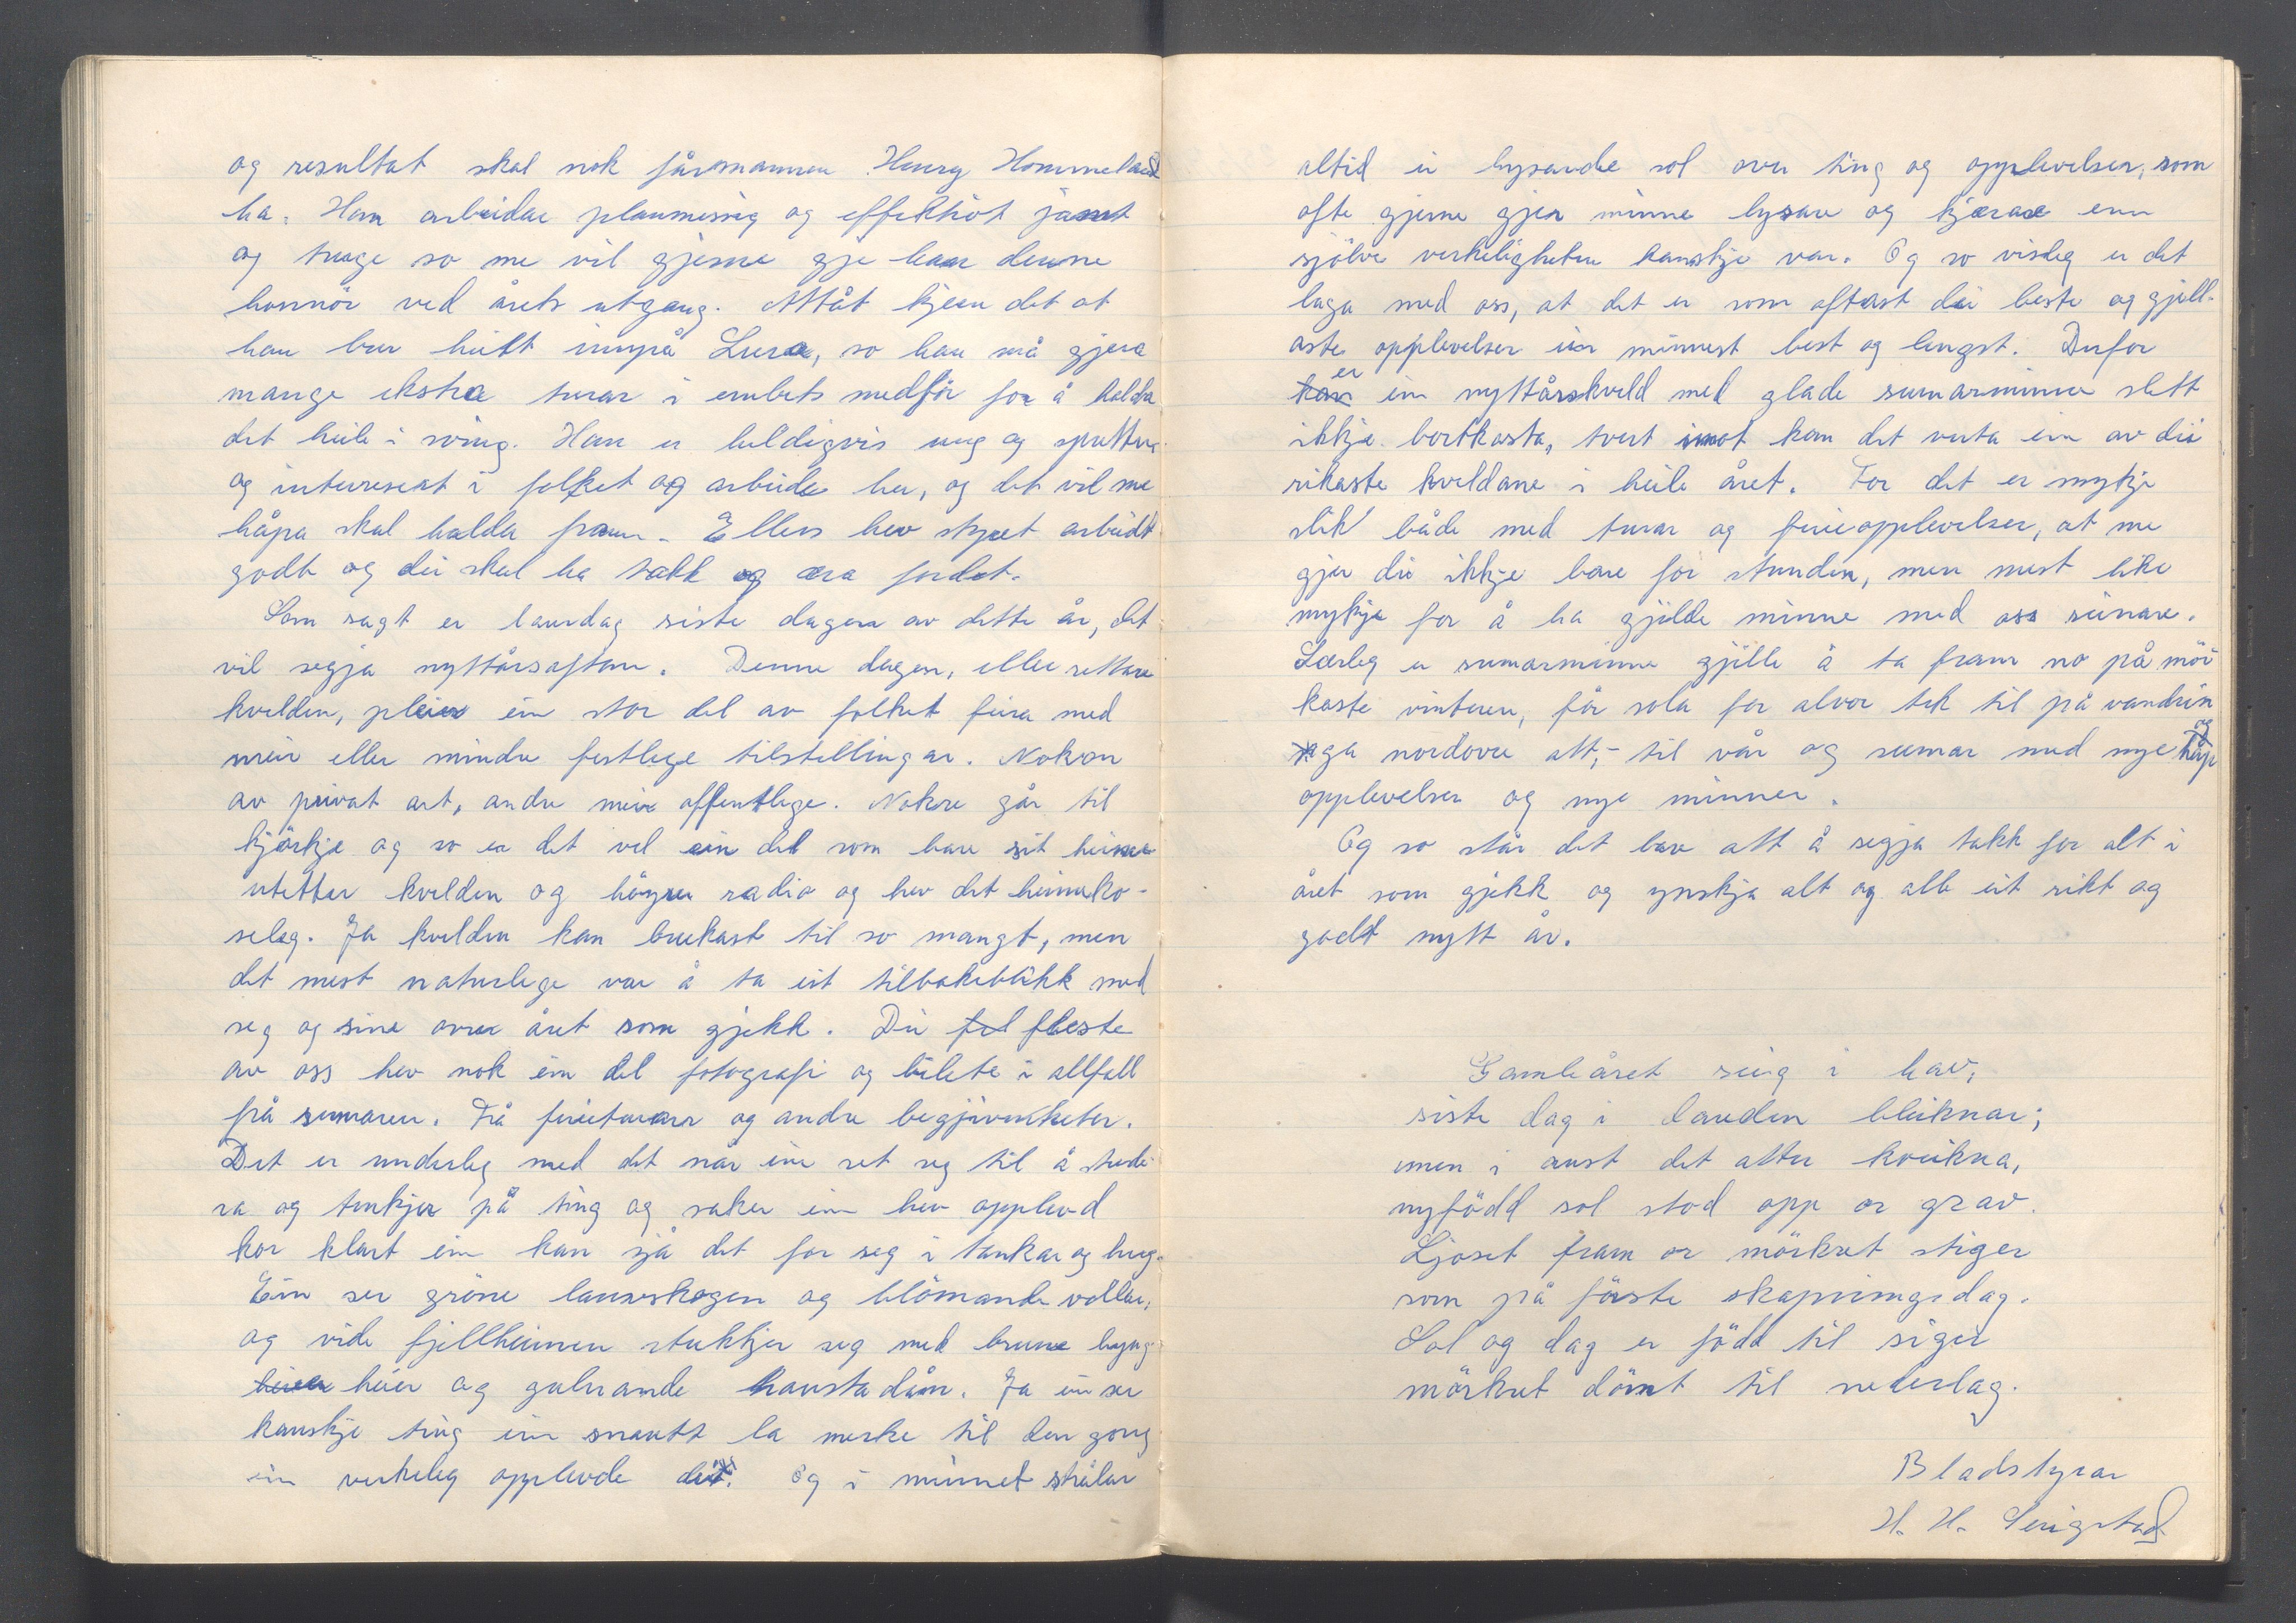 og resultat skal nok fårmannen Henry Hommeland
ha. Han arbeidar planmessig og effektivt jamt
og trage so me vil gjerne gje han denne
honnör ved årets utgang. Attåt kjem det at
han bur heilt innpå Lura, so han må gjera
mange ekstra turar i embets medför for å halda
det heile i sving. Han er heldigvis ung og sputtne
og interesert i folket og arbeide her, og det vil me
håpa skal halda fram. Ellers hev styret arbeidt
godt og dei skal ha takk og æra fordet.
Som sagt er laurdag siste dagen av dette år, det
vil segja nyttårsaftan. Denne dagen, eller rettare
kvelden, pleier ein stor del av folket feira med
meir eller mindre festlege tilstellingar. Nokon
av privat art, andre meir offentlege. Nokre går til
kjörkje og so er det vel ein del som bare sit heime
utetter kvelden og höyrer radio og hev det heimeko-
seleg. Ja kvelden kan brukast til so mangt, men
det mest naturlege var å ta eit tilbakeblikk med
seg og sine over året som gjekk. Dei fel fleste
av oss hev nok ein del fotografi og bilete i allfall
på sumaren. Frå ferieturar og andre begjivenheter.
Det er underleg med det når ein set seg til å stude-
ra og tenkjer på ting og saker ein hev opplevd
kor klart ein kan sjå det for seg i tankar og hug.
Ein ser gröne lauvskogen og blömande vollar,
og vide fjellheimen strekkjer seg med brune lyng-
heier heier og gulnande haustadåm. Ja ein ser
kanskje ting ein snautt la merke til den gong
ein verkeleg opplevde det. Og i minnet strålar
altid ei lysande sol over ting og opplevelser, som
ofte gjerne gjer minne lysare og kjærare enn
sjölve verkeligheten kanskje var. Og so visleg er det
laga med oss, at det er som oftast dei beste og gjell-
aste opplevelser ein minnest best og lengst. Derfor
kan er ein nyttårskveld med glade sumarminne slett
ikkje bortkasta, tvert imot kan det verta ein av dei
rikaste kveldane i heile året. For det er mykje
slik både med turar og ferieopplevelser, at me
gjer dei ikkje bare for stunden, men mest like
mykje for å ha gjilde minne med oss seinare.
Særleg er sumarminne gjille å ta fram no på mör-
kaste vinteren, för sola for alvor tek til på vandrin
nga nordover att,- til vår og sumar med nye håp og
opplevelser og nye minner.
Og so står det bare att å segja takk for alt i
året som gjekk og ynskja alt og alle eit rikt og
godt nytt år.
Gamleåret seig i hav,
siste dag i dauden bleiknar;
men i aust det atter kveikna,
nyfödd sol stod opp or grav.
Ljoset fram or mörkret stiger
som på förste skapningsdag.
Sol og dag er född til siger
mörkret dömt til nederlag.
Bladstyrar
H. H. Seigstad